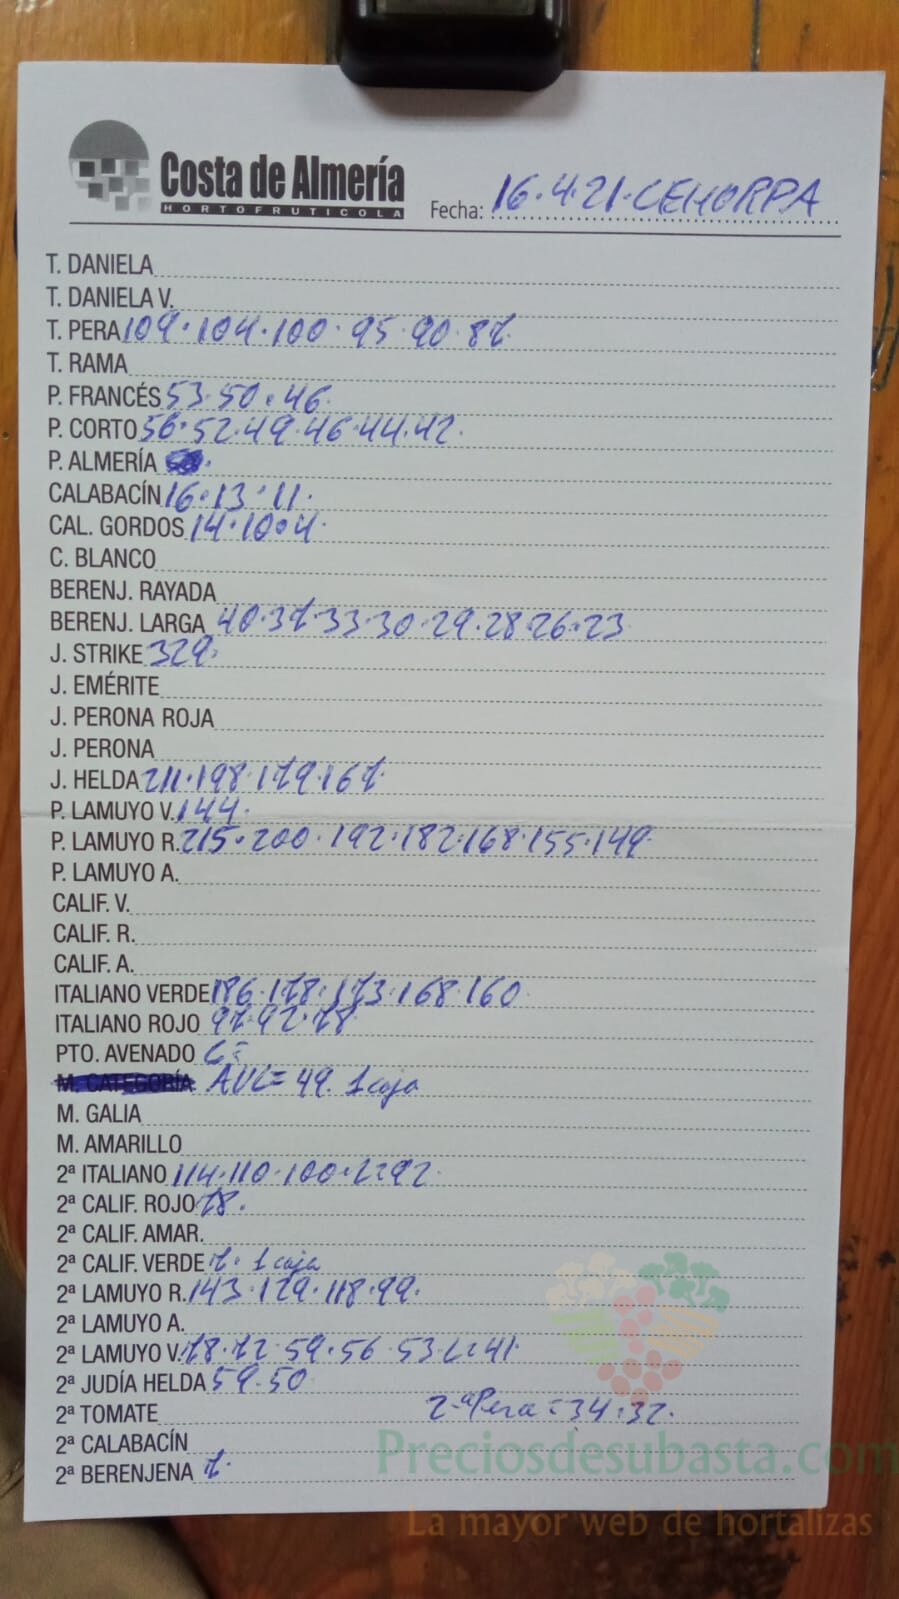 Costa de Almería
HORTOFRUTICOLA
Fecha: 16.4.21. CEHORPA
T. DANIELA
T. DANIELA V.
T. PERA 109. 104. 100. 95. 90. 87.
T. RAMA
P. FRANCÉS 53. 50. 46.
P. CORTO 56. 52. 49. 46. 44. 42.
P. ALMERÍA
CALABACÍN 16. 13. 11.
CAL. GORDOS 14. 10. 4.
C. BLANCO
BERENJ. RAYADA
BERENJ. LARGA 40. 37. 33. 30. 29. 28. 26. 23
J. STRIKE 329.
J. EMÉRITE
J. PERONA ROJA
J. PERONA
J. HELDA 211. 198. 179. 167.
P. LAMUYO V. 144.
P. LAMUYO R. 215. 200. 192. 182. 168. 155. 149.
P. LAMUYO A.
CALIF. V.
CALIF. R.
CALIF. A.
ITALIANO VERDE 186. 178. 173. 168. 160.
ITALIANO ROJO 97. 92. 78
PTO. AVENADO
M. CATEGORÍA AVE= 49. 1 caja
M. GALIA
M. AMARILLO
2ª ITALIANO 114. 110. 100. L=92.
2ª CALIF. ROJO 78.
2ª CALIF. AMAR.
2ª CALIF. VERDE 7. 1 caja
2ª LAMUYO R. 143. 129. 118. 99.
2ª LAMUYO A.
2ª LAMUYO V. 78. 72. 59. 56. 53. L=41.
2ª JUDÍA HELDA 59. 50
2ª TOMATE 2ª Pera = 34. 32.
2ª CALABACÍN
2ª BERENJENA 7.
Preciosdesubasta.com
La mayor web de hortalizas